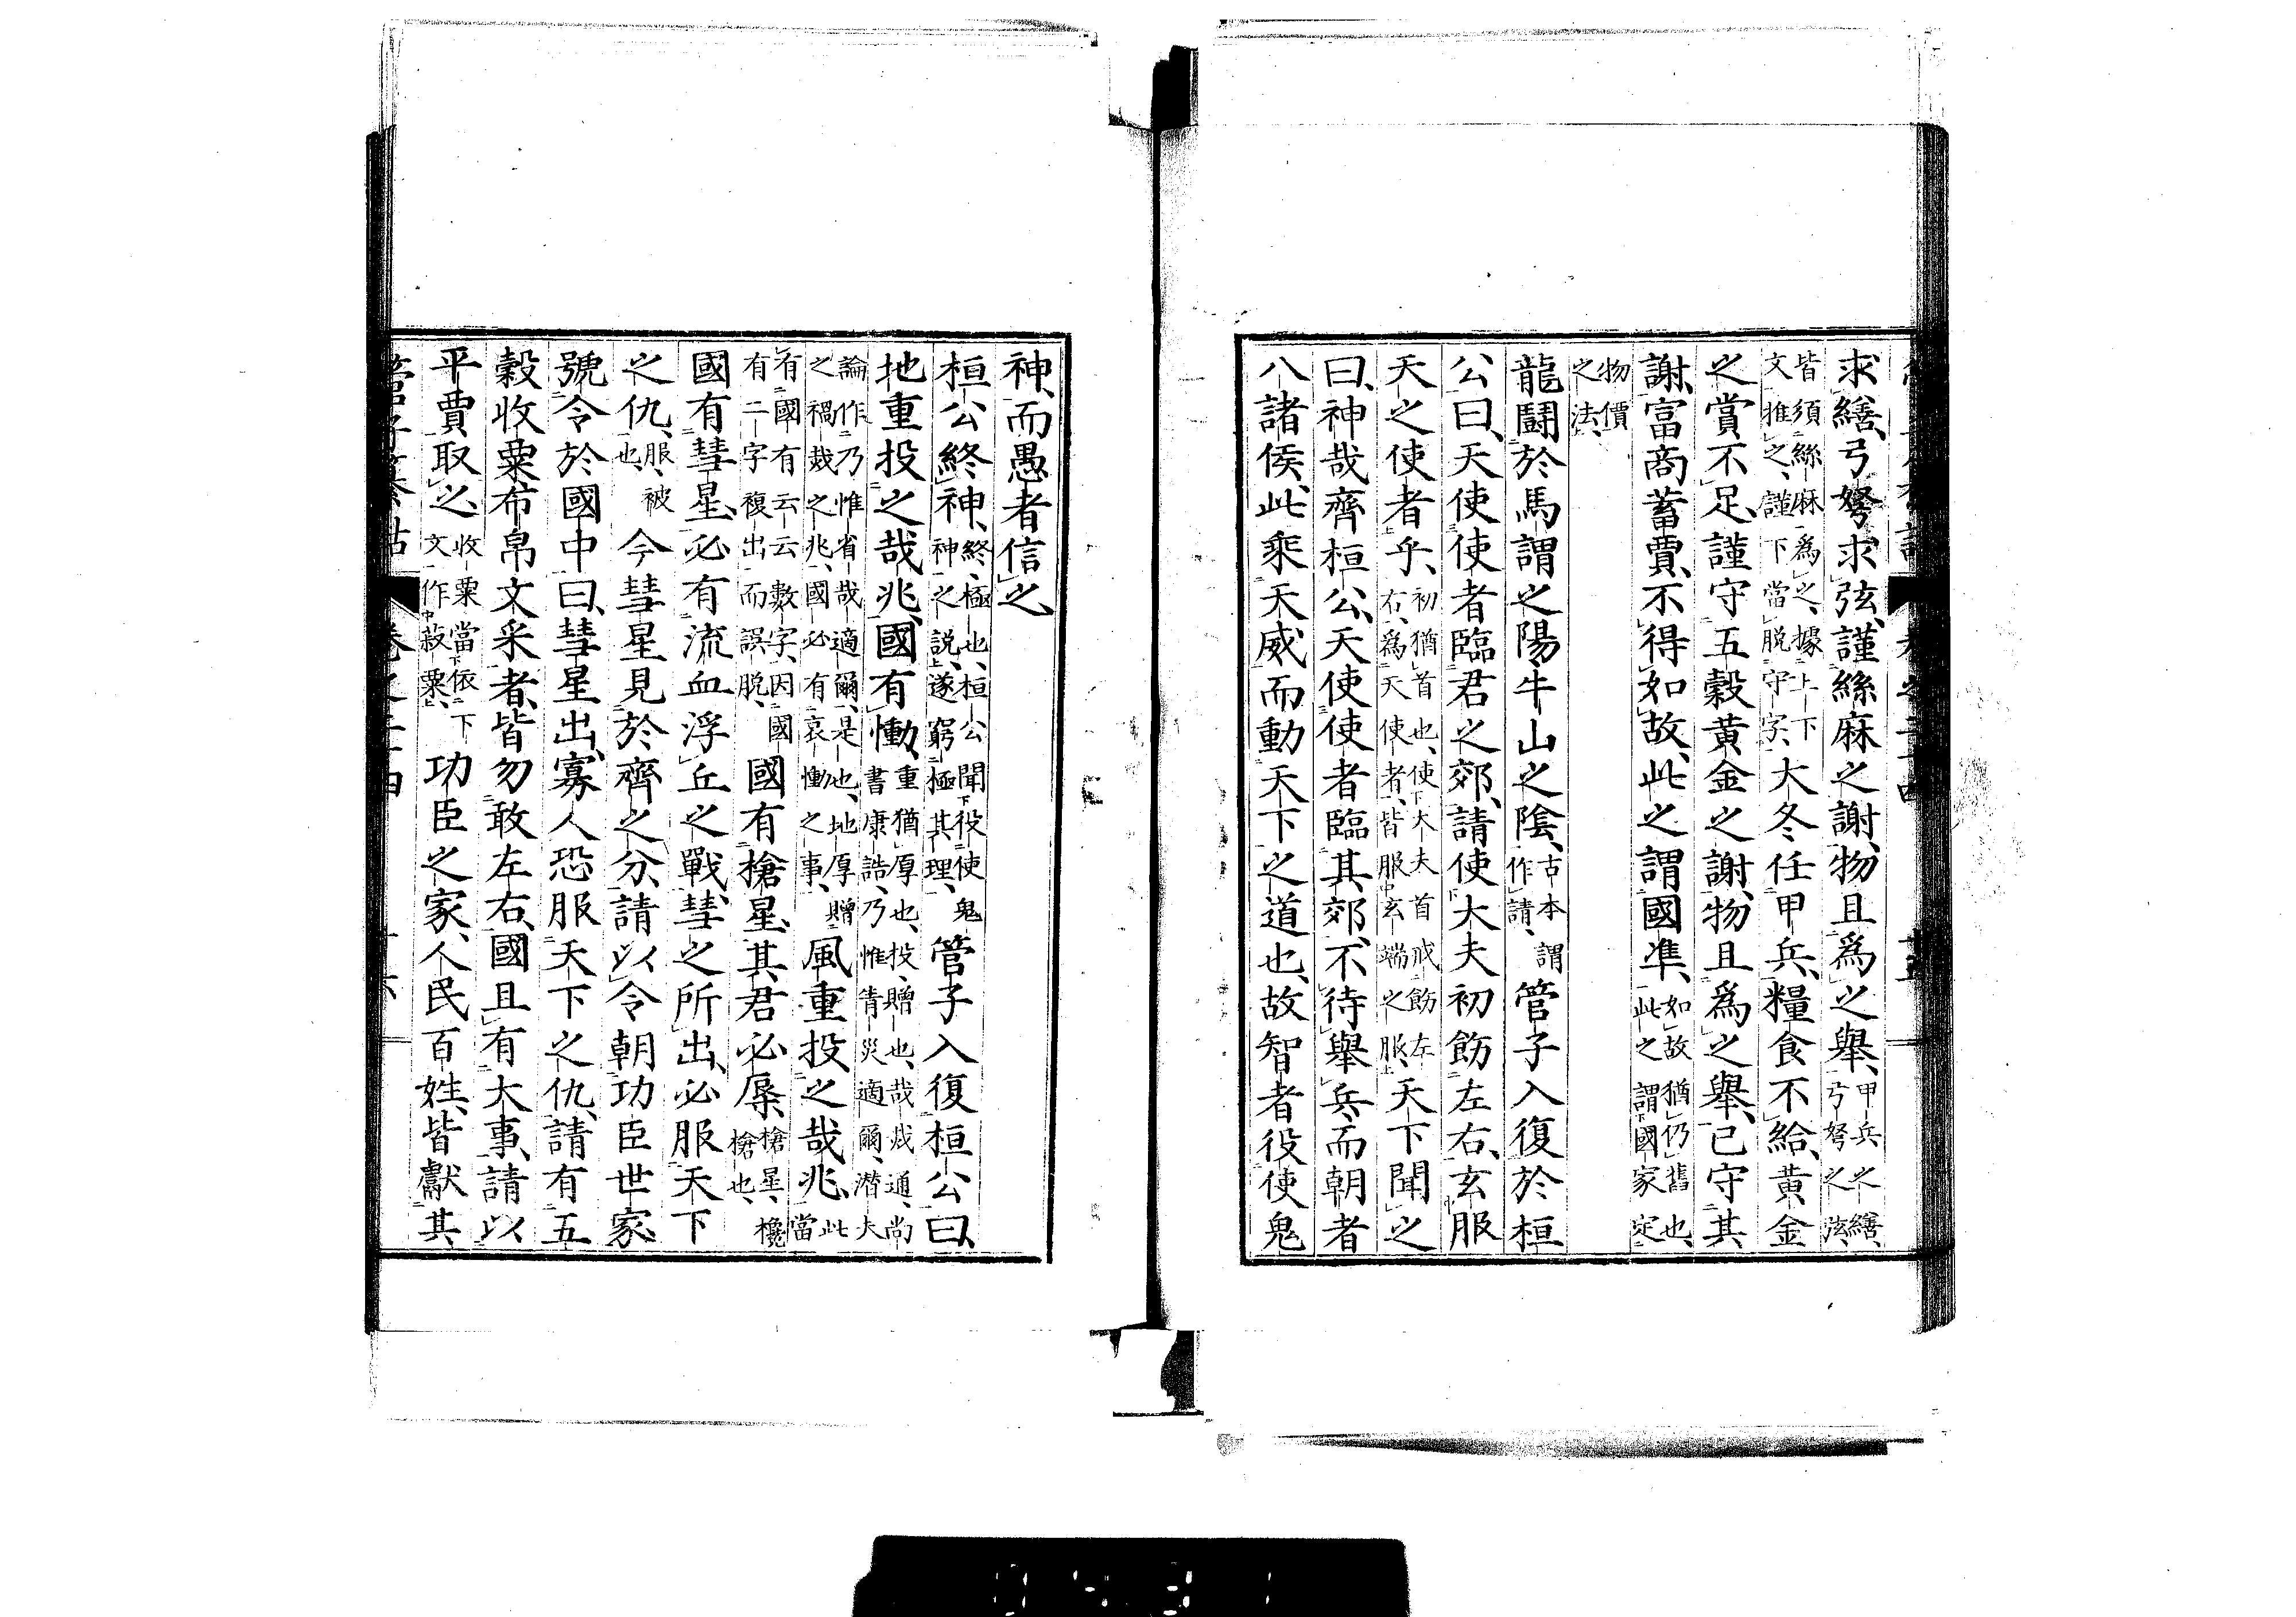 求繕、弓弩求弦、謹絲麻之謝、物且爲之舉、甲兵之繕、弓弩之弦、
皆須絲麻爲之、據上下文推之、謹下當脱守字、大冬任甲兵、糧食不給、黄金
之賞不足、謹守五穀黄金之謝、物且爲之舉、已守其
謝、富商蓄賈、不得如故、此之謂國準、如故猶仍舊也、此之謂國家定
物價之法、
龍鬪於馬謂之陽、牛山之陰、古本謂作請、管子入復於桓
公曰、天使使者臨君之郊、請使大夫初飭左右、玄服
天之使者乎、初猶首也、使大夫首戒飭左右、爲天使者、皆服玄端之服、天下聞之
曰、神哉齊桓公、天使使者臨其郊、不待舉兵、而朝者
八諸侯、此乘天威而動天下之道也、故智者役使鬼
神、而愚者信之、
桓公終神、終、極也、桓公聞役使鬼神之説、遂窮極其理、管子入復桓公曰、
地重投之哉兆、國有慟、重猶厚也、投、贈也、哉烖通、尚書康誥、乃惟眚災適爾、潛夫
論作乃惟省哉適爾、是也、地厚贈之禍烖之兆、國必有哀慟之事、風重投之哉兆、此當
有國有云云數字、因國有二字複出而誤脱、國有槍星、其君必辱、槍星、欃槍也、
國有彗星、必有流血浮丘之戰、彗之所出、必服天下
之仇、服、被也、今彗星見於齊之分、請以令朝功臣世家、
號令於國中曰、彗星出、寡人恐服天下之仇、請有五
穀收粟布帛文采者、皆勿敢左右、國且有大事、請以
平賈取之、收粟當依下文作菽粟、功臣之家、人民百姓、皆獻其
管子纂詁 卷之二十四